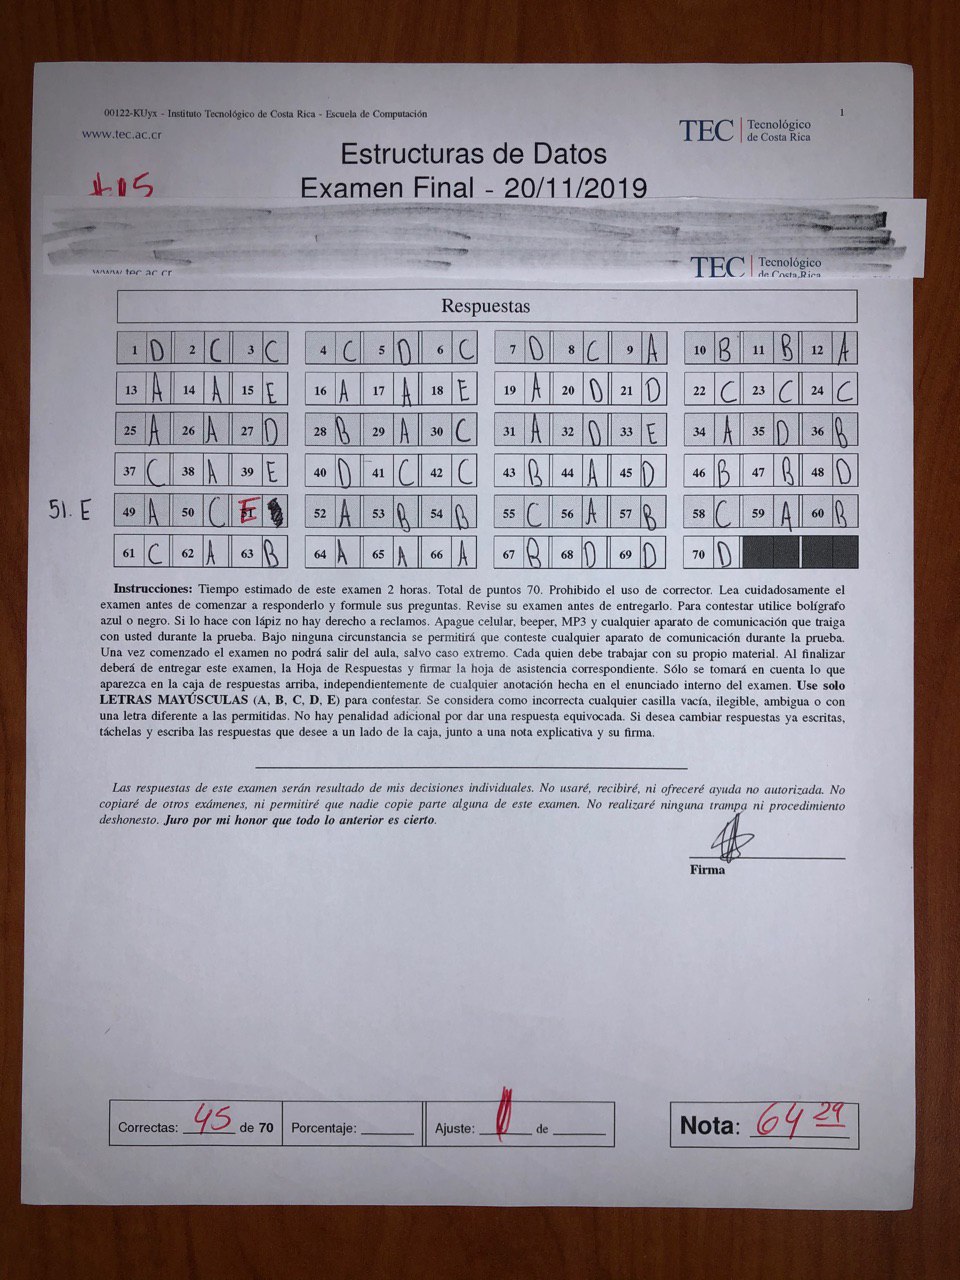 00122-KUyx - Instituto Tecnológico de Costa Rica - Escuela de Computación 1
www.tec.ac.cr
TEC | Tecnológico
de Costa Rica
Estructuras de Datos
Examen Final - 20/11/2019
www.tec.ac.cr
TEC | Tecnológico
de Costa Rica
Respuestas
1 D 2 C 3 C 4 C 5 D 6 C 7 D 8 C 9 A 10 B 11 B 12 A
13 A 14 A 15 E 16 A 17 A 18 E 19 A 20 D 21 D 22 C 23 C 24 C
25 A 26 A 27 D 28 B 29 A 30 C 31 A 32 D 33 E 34 A 35 D 36 B
37 C 38 A 39 E 40 D 41 C 42 C 43 B 44 A 45 D 46 B 47 B 48 D
51. E 49 A 50 C 51 E 52 A 53 B 54 B 55 C 56 A 57 B 58 C 59 A 60 B
61 C 62 A 63 B 64 A 65 A 66 A 67 B 68 D 69 D 70 D
Instrucciones: Tiempo estimado de este examen 2 horas. Total de puntos 70. Prohibido el uso de corrector. Lea cuidadosamente el
examen antes de comenzar a responderlo y formule sus preguntas. Revise su examen antes de entregarlo. Para contestar utilice bolígrafo
azul o negro. Si lo hace con lápiz no hay derecho a reclamos. Apague celular, beeper, MP3 y cualquier aparato de comunicación que traiga
con usted durante la prueba. Bajo ninguna circunstancia se permitirá que conteste cualquier aparato de comunicación durante la prueba.
Una vez comenzado el examen no podrá salir del aula, salvo caso extremo. Cada quien debe trabajar con su propio material. Al finalizar
deberá de entregar este examen, la Hoja de Respuestas y firmar la hoja de asistencia correspondiente. Sólo se tomará en cuenta lo que
aparezca en la caja de respuestas arriba, independientemente de cualquier anotación hecha en el enunciado interno del examen. Use solo
LETRAS MAYÚSCULAS (A, B, C, D, E) para contestar. Se considera como incorrecta cualquier casilla vacía, ilegible, ambigua o con
una letra diferente a las permitidas. No hay penalidad adicional por dar una respuesta equivocada. Si desea cambiar respuestas ya escritas,
táchelas y escriba las respuestas que desee a un lado de la caja, junto a una nota explicativa y su firma.
Las respuestas de este examen serán resultado de mis decisiones individuales. No usaré, recibiré, ni ofreceré ayuda no autorizada. No
copiaré de otros exámenes, ni permitiré que nadie copie parte alguna de este examen. No realizaré ninguna trampa ni procedimiento
deshonesto. Juro por mi honor que todo lo anterior es cierto.
Firma
Correctas: 45 de 70 Porcentaje: Ajuste: de Nota: 64 29